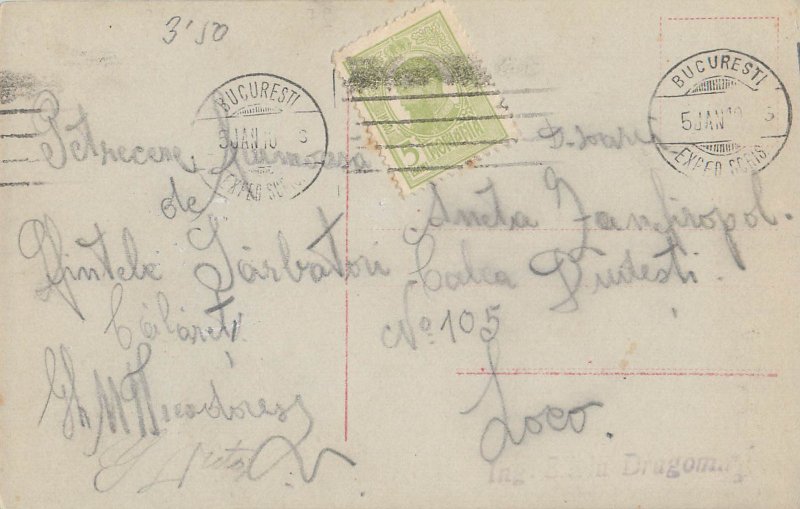 3'50
BUCURESTI
5 JAN 10 S
EXPED SCRIS
BUCURESTI
5 JAN 10 S
EXPED SCRIS
5 ROMANIA
Petrecere frumoasă
de
Sfintele Sărbători
Călărași
Gh M Theodorescu
D-soarei
Aneta Zamfiropol.
Calea Dudesti.
No 105
Loco.
Ing. Dragomir